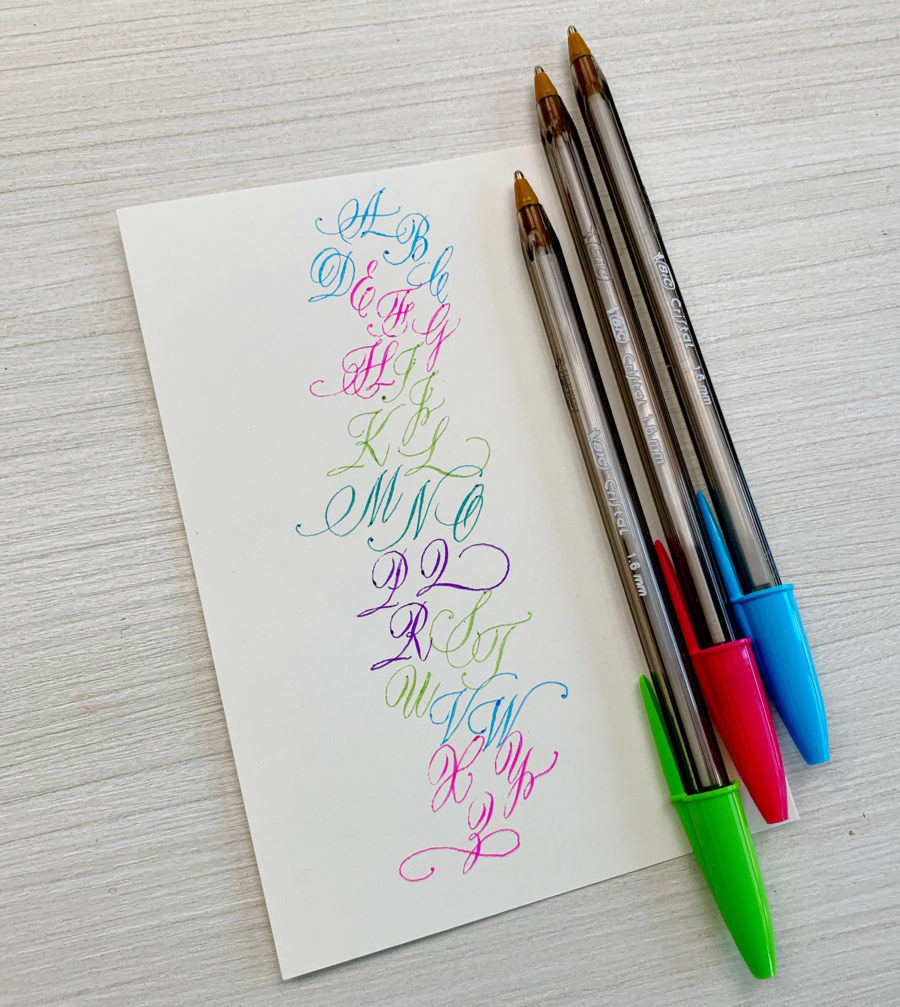 A B
D E C
F G
H I
J
K L
M N O
P Q
R S T
U V W
X Y
Z
BIC Cristal 1.6 mm
BIC Cristal 1.6 mm
BIC Cristal 1.6 mm